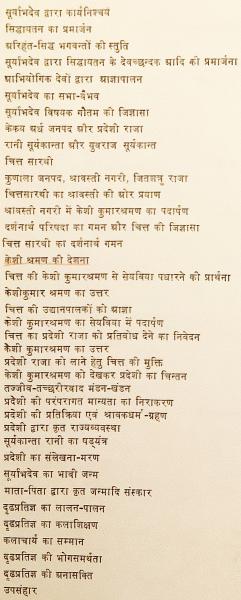 सूर्याभदेव द्वारा कार्यनिश्चय
सिद्धायतन का प्रमार्जन
अरिहंत-सिद्ध भगवन्तों की स्तुति
सूर्याभदेव द्वारा सिद्धायतन के देवच्छन्दक आदि की प्रमार्जना
आभियोगिक देवों द्वारा आज्ञापालन
सूर्याभदेव का सभा-वैभव
सूर्याभदेव विषयक गौतम की जिज्ञासा
केकय अर्ध जनपद और प्रदेशी राजा
रानी सूर्यकान्ता और युवराज सूर्यकान्त
चित्त सारथी
कुणाला जनपद, श्रावस्ती नगरी, जितशत्रु राजा
चित्तसारथी का श्रावस्ती की ओर प्रयाण
श्रावस्ती नगरी में केशी कुमारश्रमण का पदार्पण
दर्शनार्थ परिषदा का गमन और चित्त की जिज्ञासा
चित्त सारथी का दर्शनार्थ गमन
केशी श्रमण की देशना
चित्त की केशी कुमारश्रमण से सेयविया पधारने की प्रार्थना
केशीकुमार श्रमण का उत्तर
चित्त की उद्यानपालकों को आज्ञा
केशी कुमारश्रमण का सेयविया में पदार्पण
चित्त का प्रदेशी राजा को प्रतिबोध देने का निवेदन
केशी कुमारश्रमण का उत्तर
प्रदेशी राजा को लाने हेतु चित्त की युक्ति
केशी कुमारश्रमण को देखकर प्रदेशी का चिन्तन
तज्जीव-तच्छरीरवाद मंडन-खंडन
प्रदेशी की परंपरागत मान्यता का निराकरण
प्रदेशी की प्रतिक्रिया एवं श्रावकधर्म-ग्रहण
प्रदेशी द्वारा कृत राज्यव्यवस्था
सूर्यकान्ता रानी का षड्यंत्र
प्रदेशी का संलेखना-मरण
सूर्याभदेव का भावी जन्म
माता-पिता द्वारा कृत जन्मादि संस्कार
दृढप्रतिज्ञ का लालन-पालन
दृढप्रतिज्ञ का कलाशिक्षण
कलाचार्य का सम्मान
दृढप्रतिज्ञ की भोगसमर्थता
दृढप्रतिज्ञ की अनासक्ति
उपसंहार